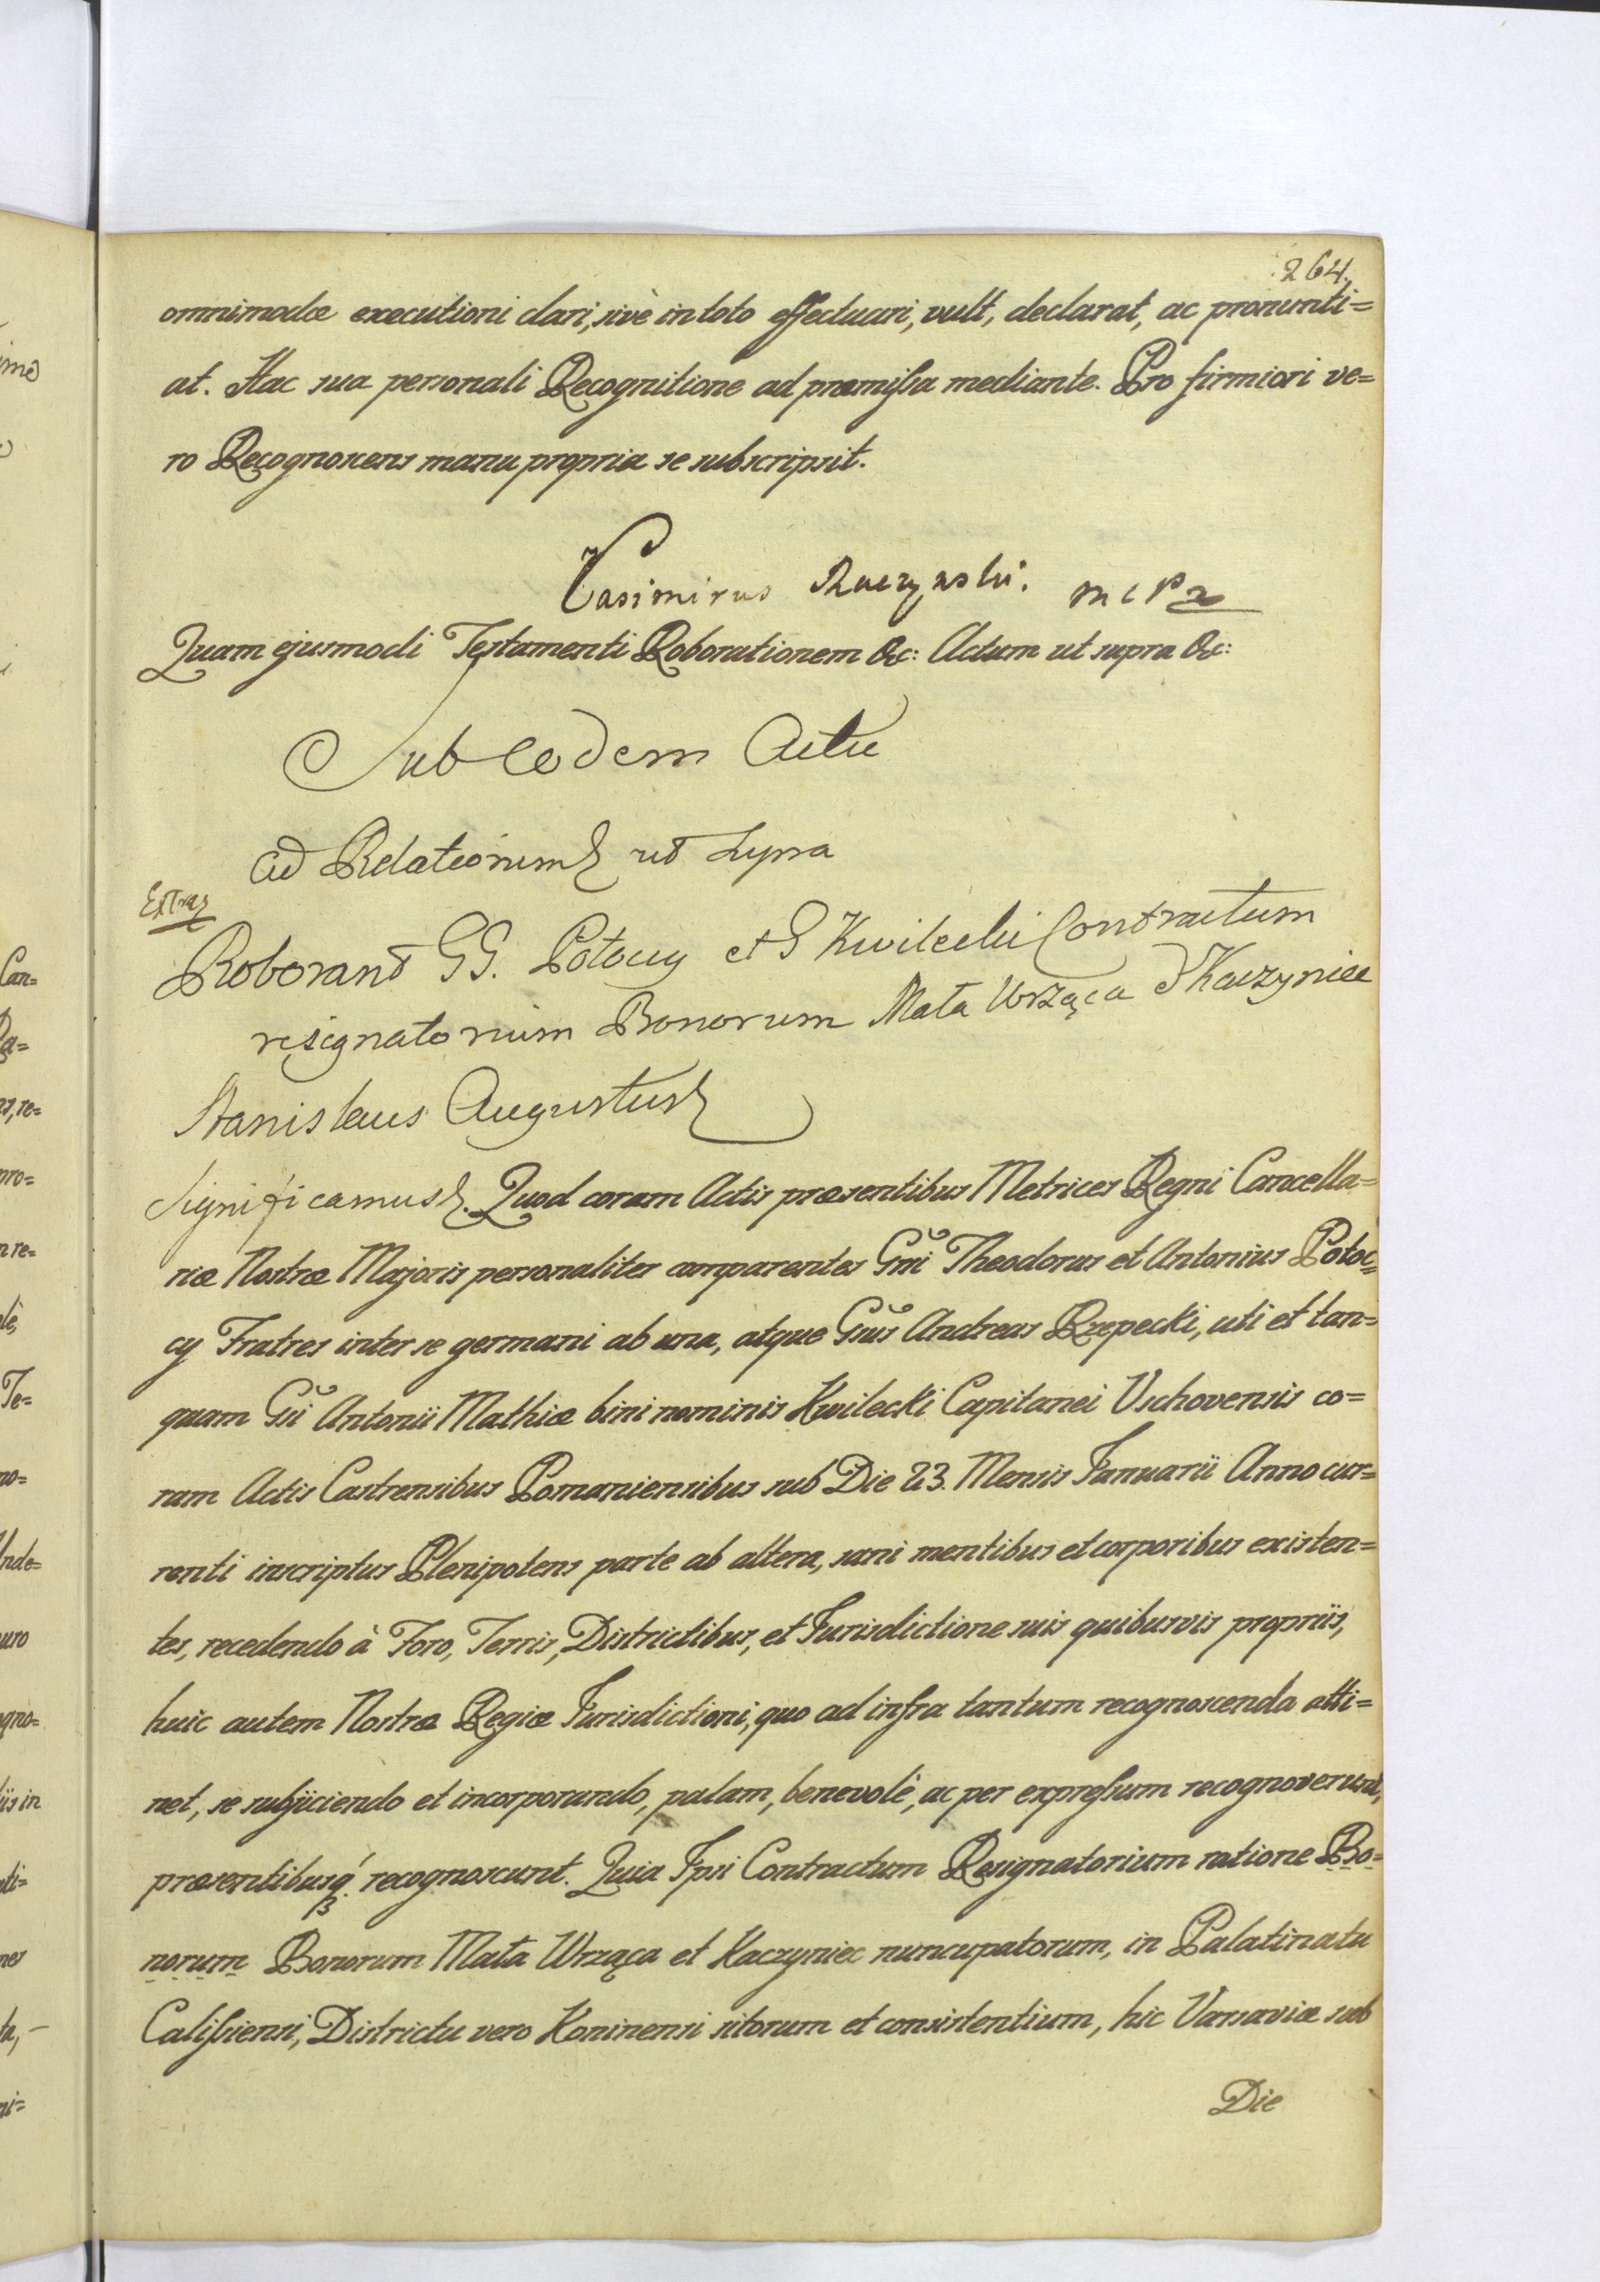 264.
omnimodæ executioni dari, sivè in toto effectuari, vult, declarat, ac pronunti=
at. Hac sua personali Recognitione ad præmissa mediante. Pro firmiori ve=
ro Recognoscens manu propria se subscripsit.
Casimirus Raczynski. mpr
Quam ejusmodi Testamenti Roborationem &c: Actum ut supra &c:
Sub eodem Actu
Ad Relationem ut supra
Extrad
Roborant GG. Potoccy et G Kwilecki Contractum
resignatorium Bonorum Mała Wrząca & Kaczyniec
Stanislaus Augustus
Significamus. Quod coram Actis præsentibus Metrices Regni Cancella=
riæ Nostræ Majoris personaliter comparentes Gñi Theodorus et Antonius Potoc=
cy Fratres inter se germani ab una, atque Gñus Andreas Rzepecki, uti et tan=
quam Gñi Antonii Mathiæ bini nominis Kwilecki Capitanei Vschovensis co=
ram Actis Castrensibus Posnaniensibus sub Die 23. Mensis Januarii Anno cur=
renti inscriptus Plenipotens parte ab altera, sani mentibus et corporibus existen=
tes, recedendo à Foro, Terris, Districtibus, et Jurisdictione suis quibusvis propriis,
huic autem Nostræ Regiæ Jurisdictioni, quo ad infra tantum recognoscenda atti=
net, se subjiciendo et incorporando, palam, benevolè, ac per expressum recognoverunt,
præsentibusq́ recognoscunt. Quia Ipsi Contractum Resignatorium ratione Bo=
norum Bonorum Mała Wrząca et Kaczyniec nuncupatorum, in Palatinatu
Calissiensi, Districtu vero Koninensi sitorum et consistentium, hic Varsaviæ sub
Die